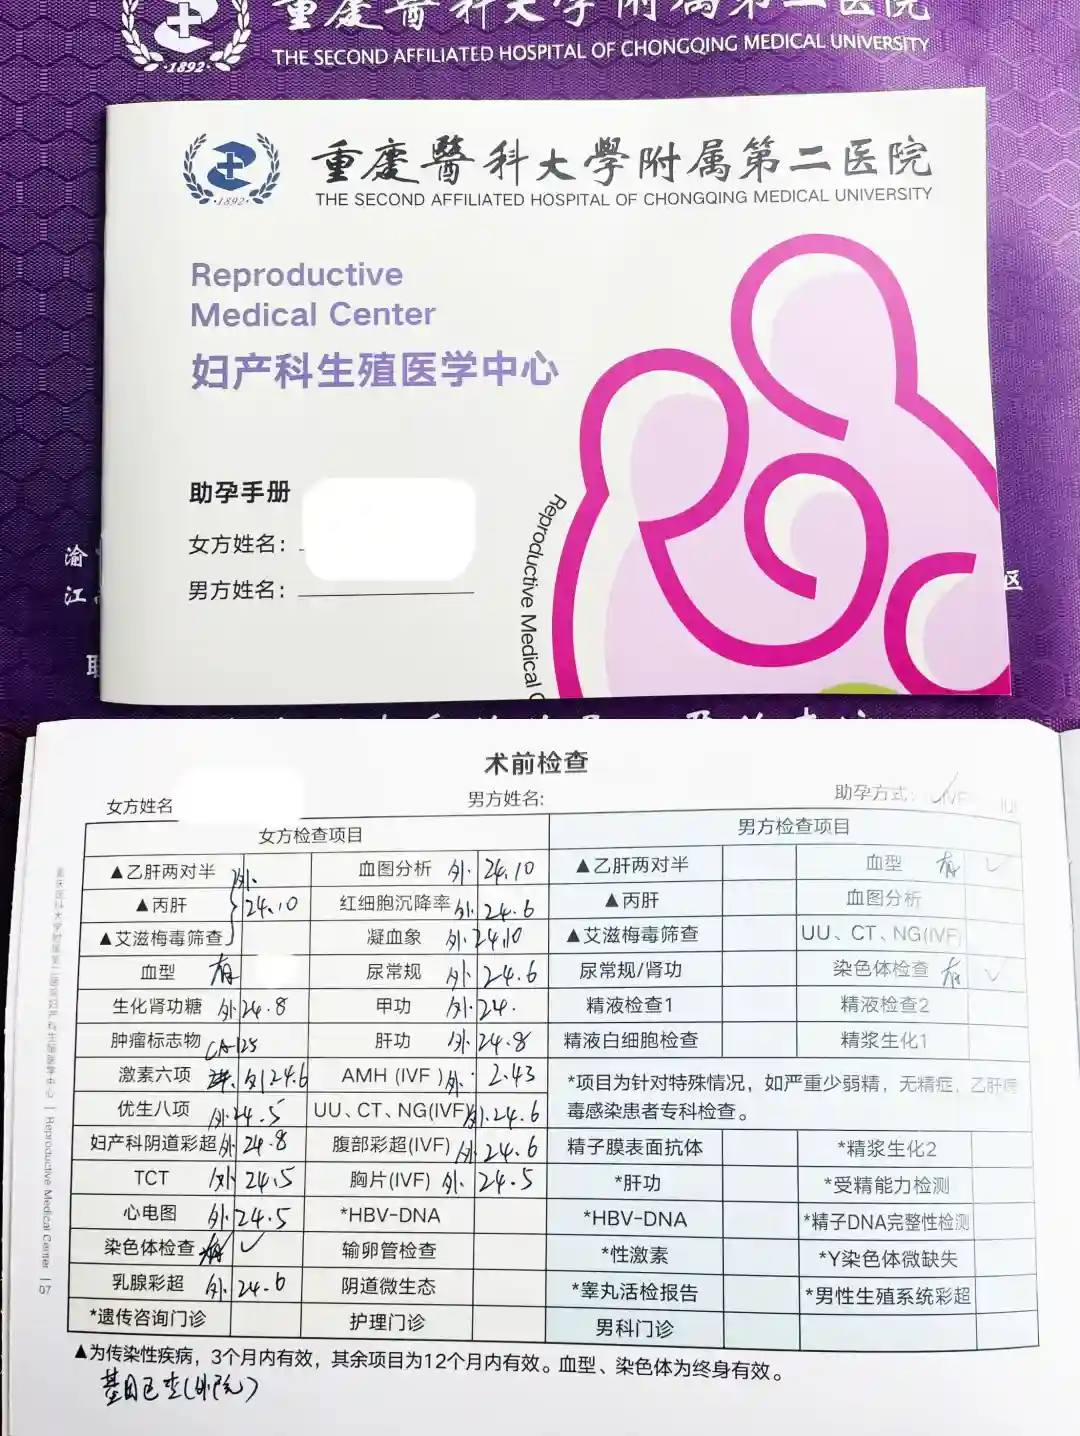 重慶醫科大學附属第二医院
THE SECOND AFFILIATED HOSPITAL OF CHONGQING MEDICAL UNIVERSITY
·1892·
重慶醫科大學附属第二医院
THE SECOND AFFILIATED HOSPITAL OF CHONGQING MEDICAL UNIVERSITY
·1892·
Reproductive
Medical Center
妇产科生殖医学中心
助孕手册
女方姓名：
男方姓名：
Reproductive Medical
渝
江
区
术前检查
女方姓名 男方姓名: 助孕方式：
女方检查项目 男方检查项目
▲乙肝两对半 外. 血图分析 外. 24.10 ▲乙肝两对半 血型 有 ✓
▲丙肝 24.10 红细胞沉降率 外. 24.6 ▲丙肝 血图分析
▲艾滋梅毒筛查 凝血象 外. 24.10 ▲艾滋梅毒筛查 UU、CT、NG(IVF)
血型 有 尿常规 外. 24.6 尿常规/肾功 染色体检查 有 ✓
生化肾功糖 外. 24.8 甲功 外. 24. 精液检查1 精液检查2
肿瘤标志物 CA-125 肝功 外. 24.8 精液白细胞检查 精浆生化1
激素六项 外24.6 AMH (IVF) 外. 2.43 *项目为针对特殊情况，如严重少弱精，无精症，乙肝病
优生八项 外. 24.5 UU、CT、NG(IVF) 外. 24.6 毒感染患者专科检查。
妇产科阴道彩超 外. 24.8 腹部彩超(IVF) 外. 24.6 精子膜表面抗体 *精浆生化2
TCT 外. 24.5 胸片(IVF) 外. 24.5 *肝功 *受精能力检测
心电图 外. 24.5 *HBV-DNA *HBV-DNA *精子DNA完整性检测
染色体检查 ✓ 输卵管检查 *性激素 *Y染色体微缺失
乳腺彩超 外. 24.6 阴道微生态 *睾丸活检报告 *男性生殖系统彩超
*遗传咨询门诊 护理门诊 男科门诊
▲为传染性疾病，3个月内有效，其余项目为12个月内有效。血型、染色体为终身有效。
基因已查(外院)
重庆医科大学附属第二医院妇产科生殖医学中心 | Reproductive Medical Center | 07